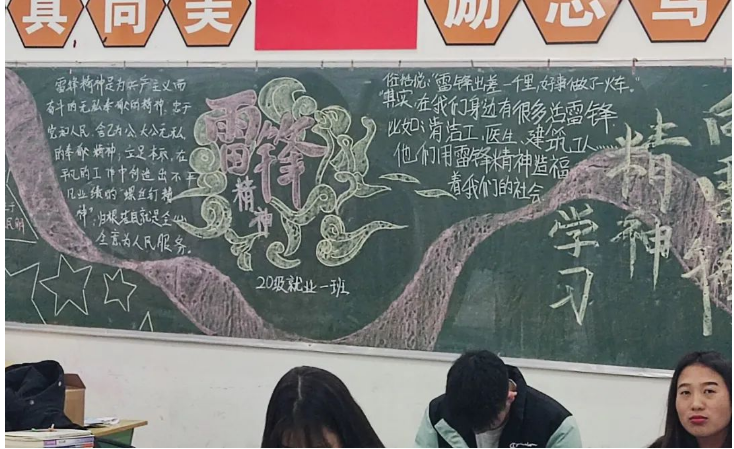 真 向 美
励 志 笃
雷锋精神是为共产主义而
奋斗的无私奉献的精神，忠于
党和人民，舍己为公，大公无私
的奉献精神；立足本职，在
平凡的工作中创造出不平
凡业绩的“螺丝钉精
神”；归根结底就是全心
全意为人民服务。
雷锋
精神
20级就业一班
俗话说：“雷锋出差一千里，好事做了一火车。”
其实，在我们身边有很多活雷锋
比如：清洁工、医生、建筑工人……
他们用雷锋精神造福
着我们的社会
向雷锋
精神
学习